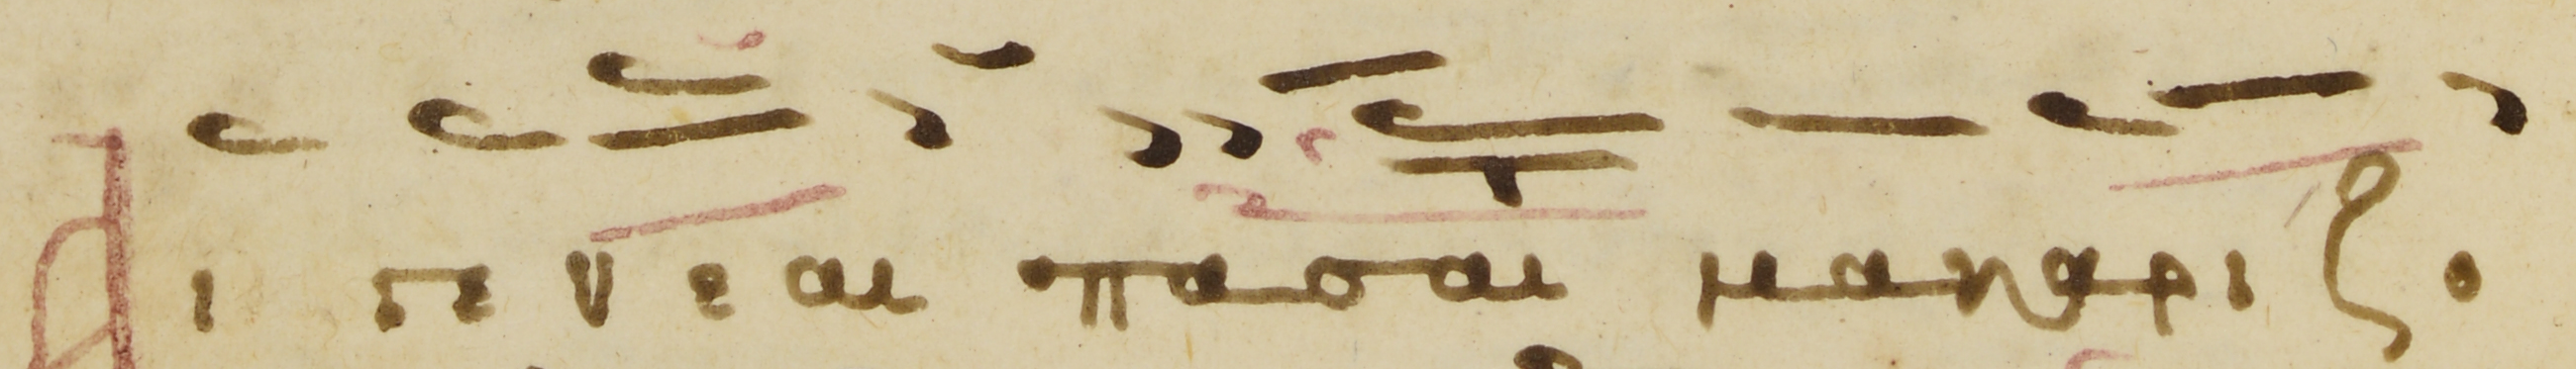 Αι γενεαι πασαι μακαριζο